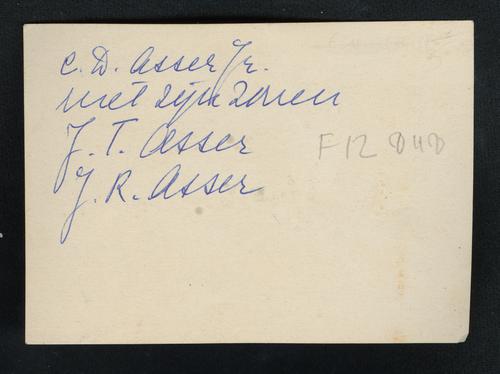 C. D. Asser Jr.
met zijn zonen
J. T. Asser
J. R. Asser
F12 040